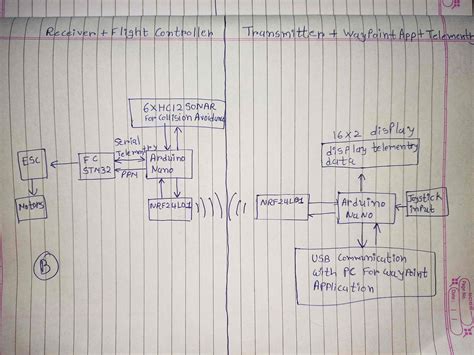 Receiver + Flight Controller
Transmitter + WayPoint App + Telemetry
6XHC12 SONAR
For Collision Avoidance
Serial
Telemetry
ESC
FC
STM32
PPM
Arduino
Nano
Motors
NRF24L01
B
16x2 display
display telementry
data
NRF24L01
Arduino
NaNo
Joystick
input
USB Communication
with PC For WayPoint
Application